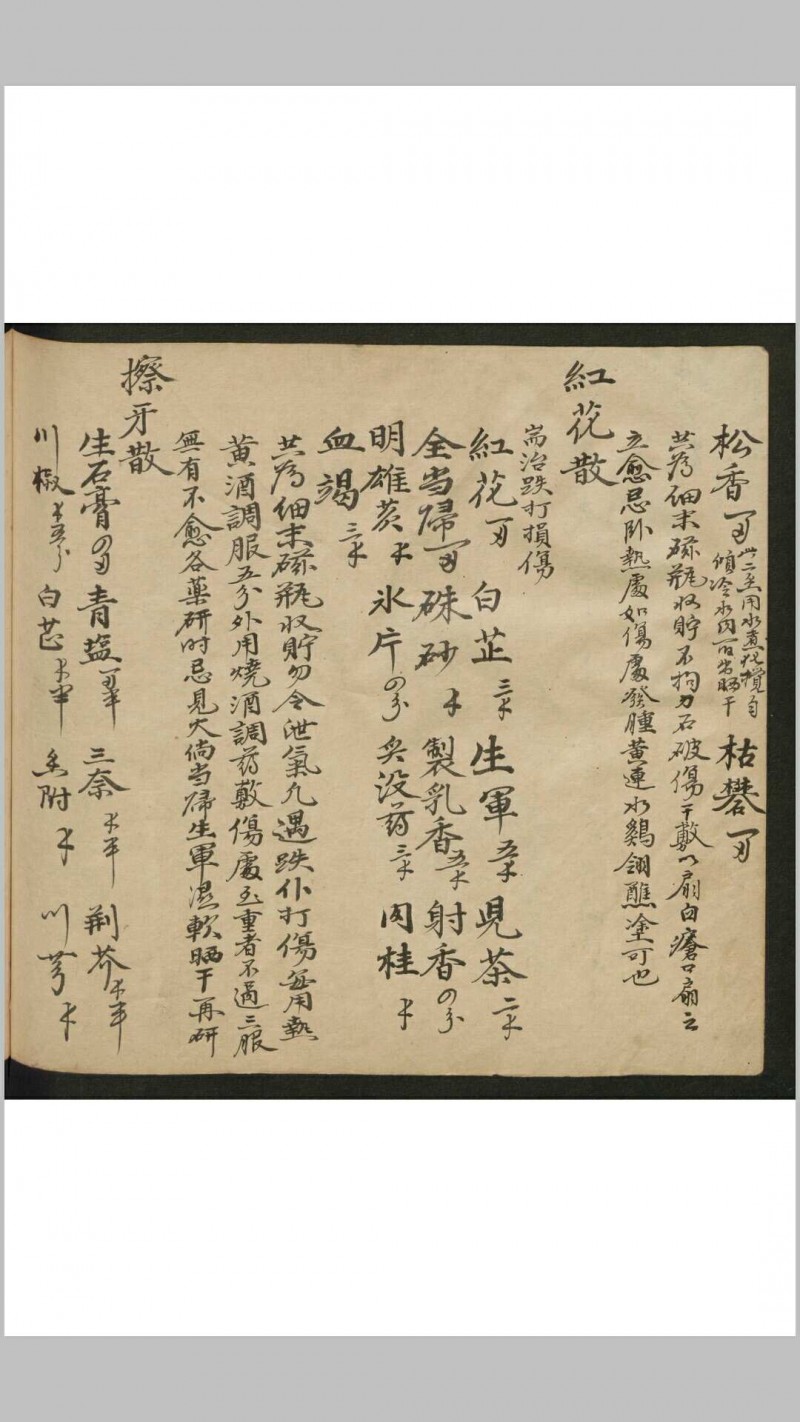 松香 一両 枯礬 一両
共為細末磁瓶收貯不拘刀石破傷干敷以扇向瘡口扇之
立愈忌卧熱處如傷處發腫黄連水鷄翎醮塗可也
紅花散
耑治跌打損傷
紅花 白芷 三錢 生軍 五錢 児茶 二錢
全当帰 硃砂 錢 製乳香 五錢 射香 四分
明雄黄 錢 氷片 四分 炙没药 三錢 肉桂 錢
血竭 三錢
共為細末磁瓶收貯勿令泄氣凡遇跌仆打傷每用熱
黄酒調服五分外用燒酒調药敷傷處至重者不過三服
無有不愈各藥研时忌見火倘当歸生軍濕軟晒干再研
擦牙散
生石膏 青盐 三奈 荆芥
川椒 白芷 香附 錢 川芎 錢